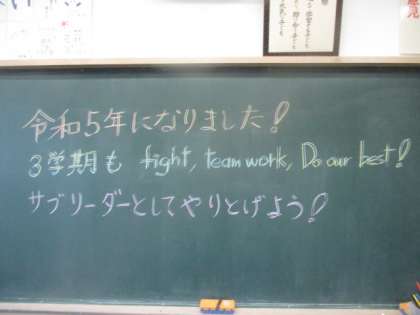 令和5年になりました!
3学期も fight, team work, Do our best!
サブリーダーとしてやりとげよう!